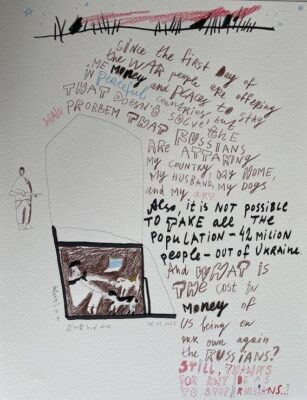 SINCE THE FIRST DAY of
the WAR people are offering
ME MONEY and PLACES to STAY
IN Peaceful countries but
THAT DOESN'T SOLVE the
MAIN PROBLEM THAT RUSSIANS
ARE ATTAKING
MY COUNTRY, MY HOME,
MY HUSBAND, MY DOGS
and MY
Also, it is NOT POSSIBLE
TO TAKE all THE
POPULATION – 42 MILION
people – OUT OF UKRAINE
And WHAT is
THE COST IN
MONEY of
US being on
own again
the RUSSIANS?
STILL, THANKS
FOR ANY IDEAS
TO STOP RUSSIANS..!